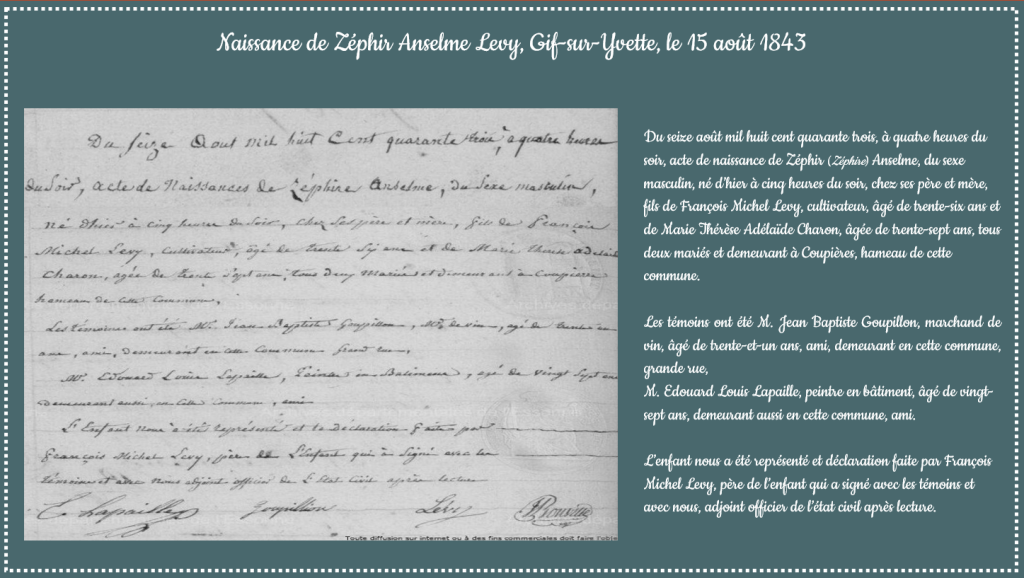 Naissance de Zéphir Anselme Levy, Gif-sur-Yvette, le 15 août 1843
Du seize Aout mil huit Cent quarante trois, a quatre heures
du Soir, acte de Naissances de Zéphire Anselme, du Sexe masculin,
né d'hier à cinq heures du soir, chez ses père et mère, fils de François
Michel Levy, Cultivateur, agé de trente Six ans et de Marie Adelaide
Charon, agée de trente sept ans, tous deux Mariés et demeurant à Coupières
hameau de cette Commune,
Les témoins ont été Mr. Jean Baptiste Goupillon, Md de vin, agé de trente
ans, ami, demeurant en cette Commune Grand rue,
Mr. Edouard Louis Lapaille, Peintre en Batiment, agé de vingt Sept ans
demeurant aussi en cette Commune, ami
L'Enfant nous a été représenté et la Déclaration faite par
François Michel Levy, père de L'Enfant qui à Signé avec les
témoins et avec nous adjoint officier de L'Etat Civil après lecture
E. Lapaille Goupillon Levy
Toute diffusion sur internet ou à des fins commerciales doit faire l'obje
Du seize août mil huit cent quarante trois, à quatre heures du
soir, acte de naissance de Zéphir (Zéphire) Anselme, du sexe
masculin, né d'hier à cinq heures du soir, chez ses père et mère,
fils de François Michel Levy, cultivateur, âgé de trente-six ans et
de Marie Thérèse Adélaïde Charon, âgée de trente-sept ans, tous
deux mariés et demeurant à Coupières, hameau de cette
commune.
Les témoins ont été M. Jean Baptiste Goupillon, marchand de
vin, âgé de trente-et-un ans, ami, demeurant en cette commune,
grande rue,
M. Edouard Louis Lapaille, peintre en bâtiment, âgé de vingt-
sept ans, demeurant aussi en cette commune, ami.
L'enfant nous a été représenté et déclaration faite par François
Michel Levy, père de l'enfant qui a signé avec les témoins et
avec nous, adjoint officier de l'état civil après lecture.